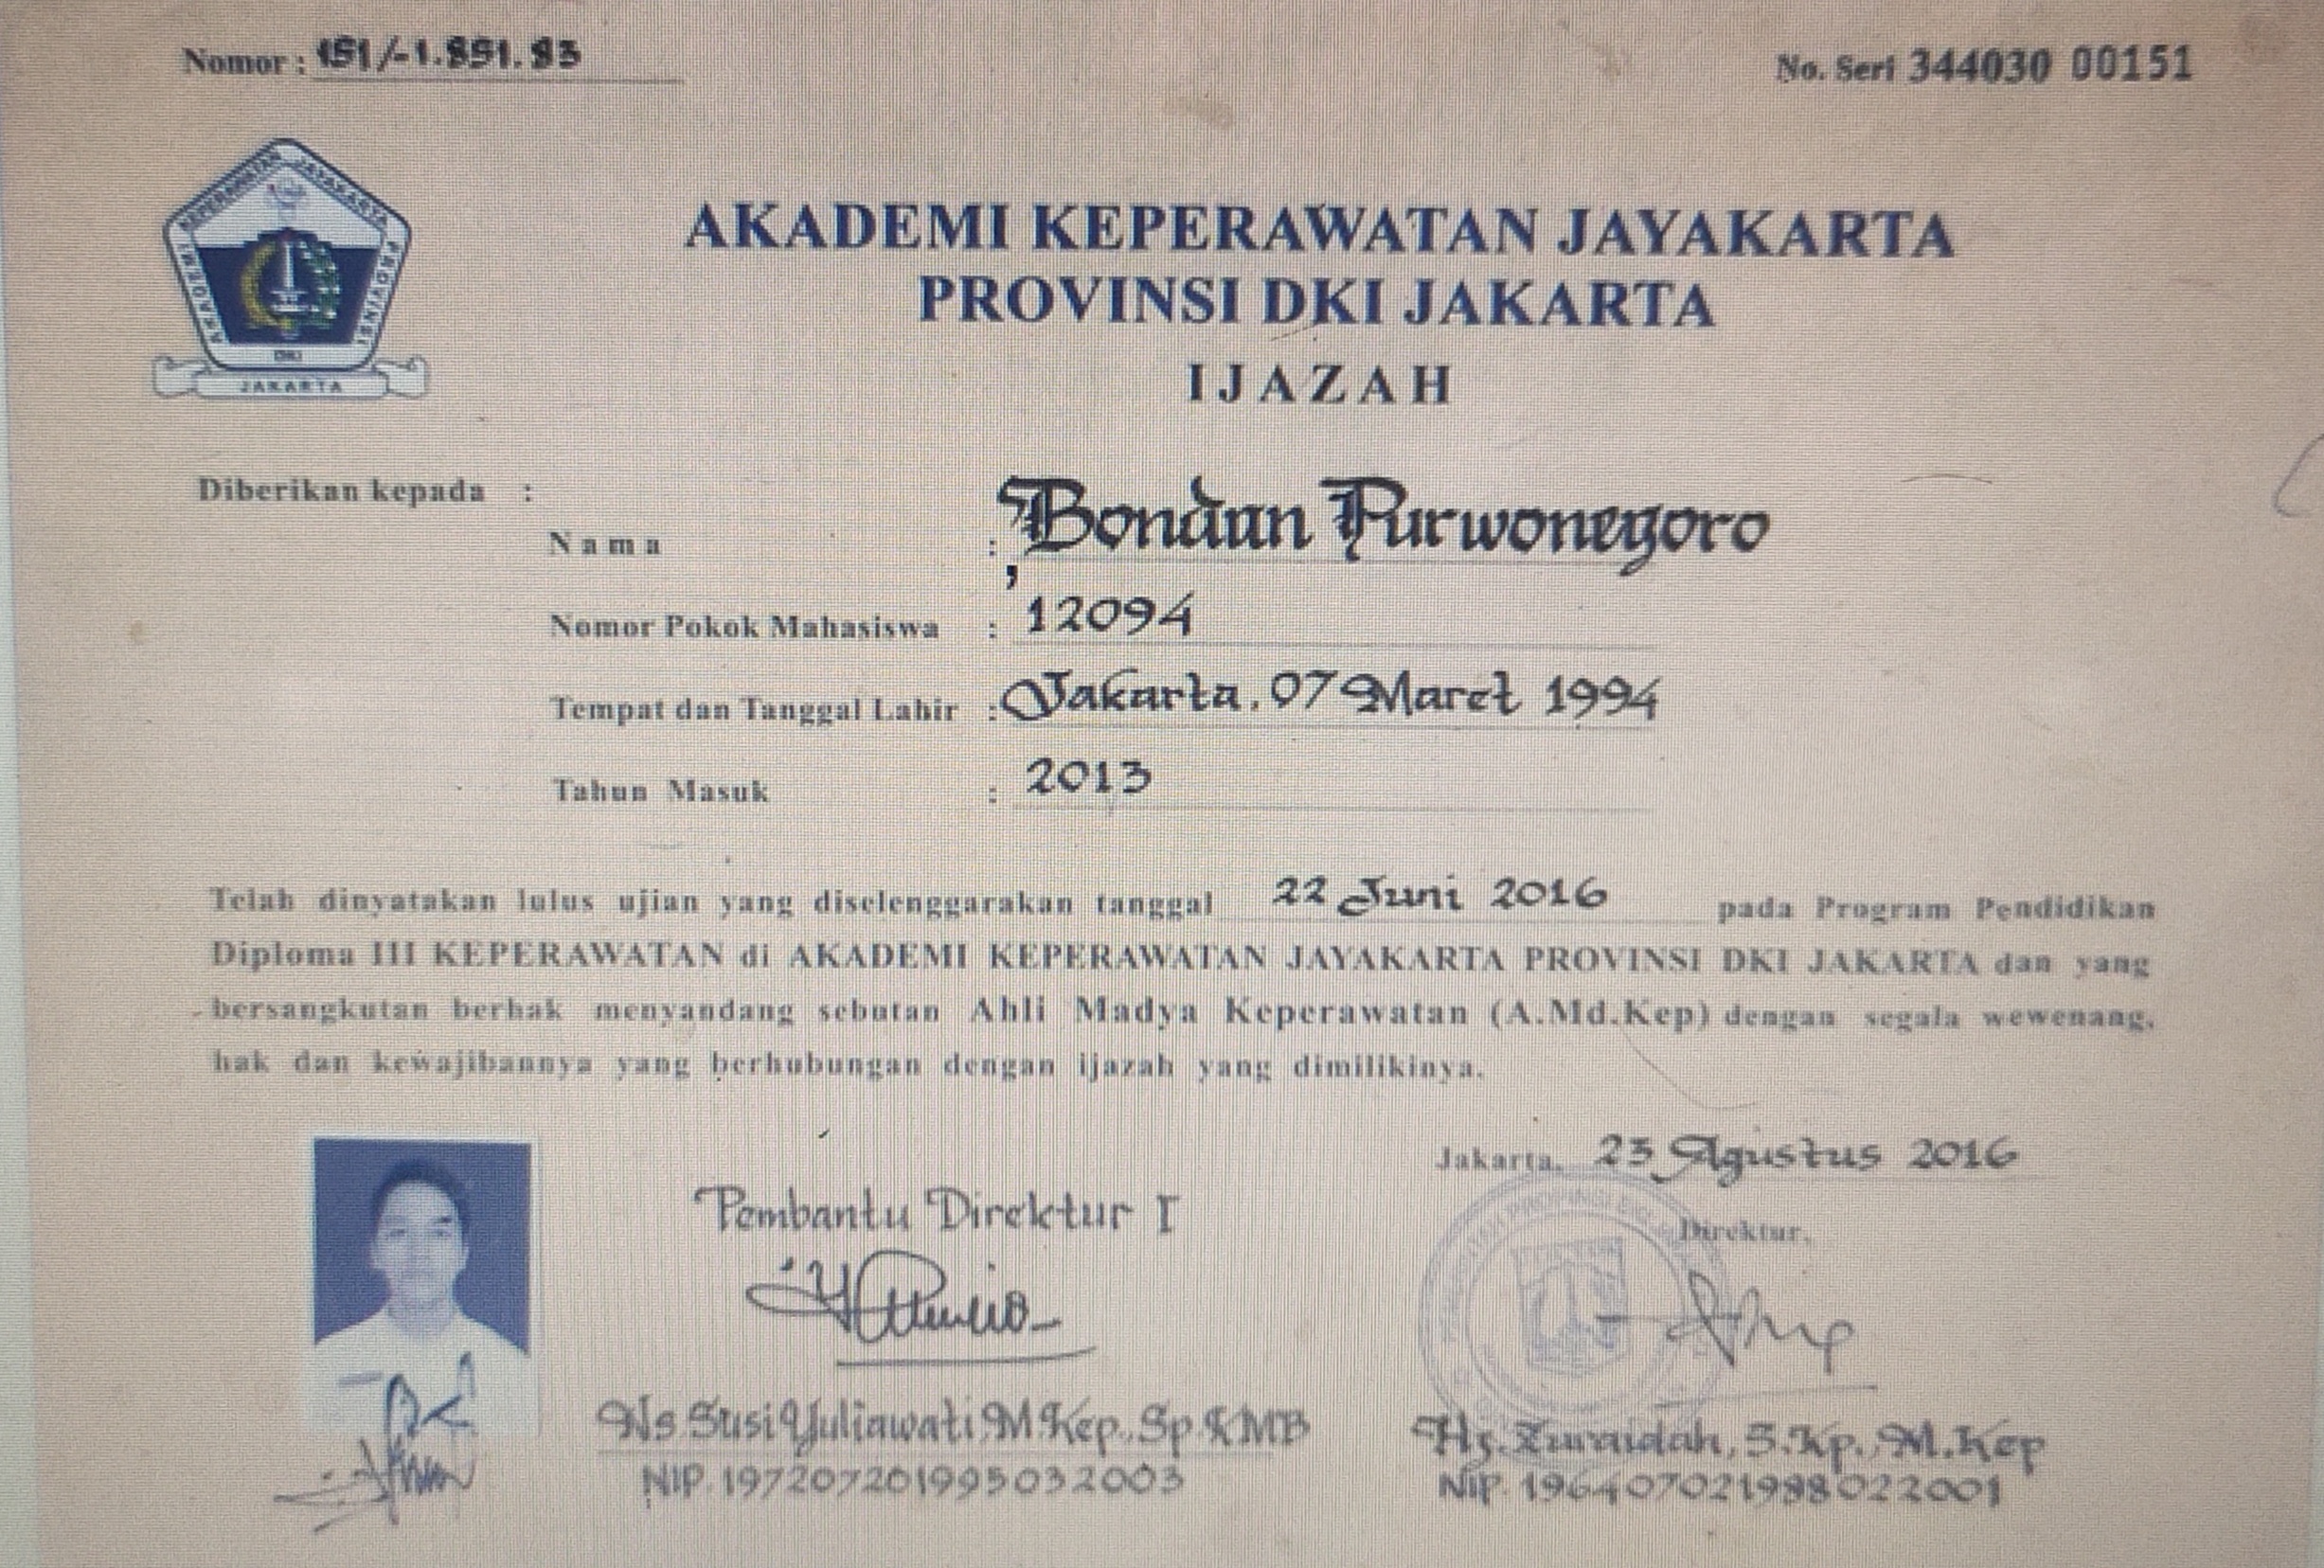 Nomor : 151/-1.851.83
No. Seri 344030 00151
AKADEMI KEPERAWATAN JAYAKARTA PROVINSI
DKI
JAKARTA
AKADEMI KEPERAWATAN JAYAKARTA
PROVINSI DKI JAKARTA
IJAZAH
Diberikan kepada :
Nama : Bondan Purwonegoro
Nomor Pokok Mahasiswa : 12094
Tempat dan Tanggal Lahir : Jakarta, 07 Maret 1994
Tahun Masuk : 2013
Telah dinyatakan lulus ujian yang diselenggarakan tanggal 22 Juni 2016 pada Program Pendidikan
Diploma III KEPERAWATAN di AKADEMI KEPERAWATAN JAYAKARTA PROVINSI DKI JAKARTA dan yang
bersangkutan berhak menyandang sebutan Ahli Madya Keperawatan (A.Md.Kep) dengan segala wewenang,
hak dan kewajibannya yang berhubungan dengan ijazah yang dimilikinya.
Jakarta, 23 Agustus 2016
Pembantu Direktur I
Direktur,
Ns. Susi Yuliawati, M.Kep., Sp.KMB
NIP. 197207201995032003
Hj. Zuraidah, S.Kp., M.Kep
NIP. 196407021988022001